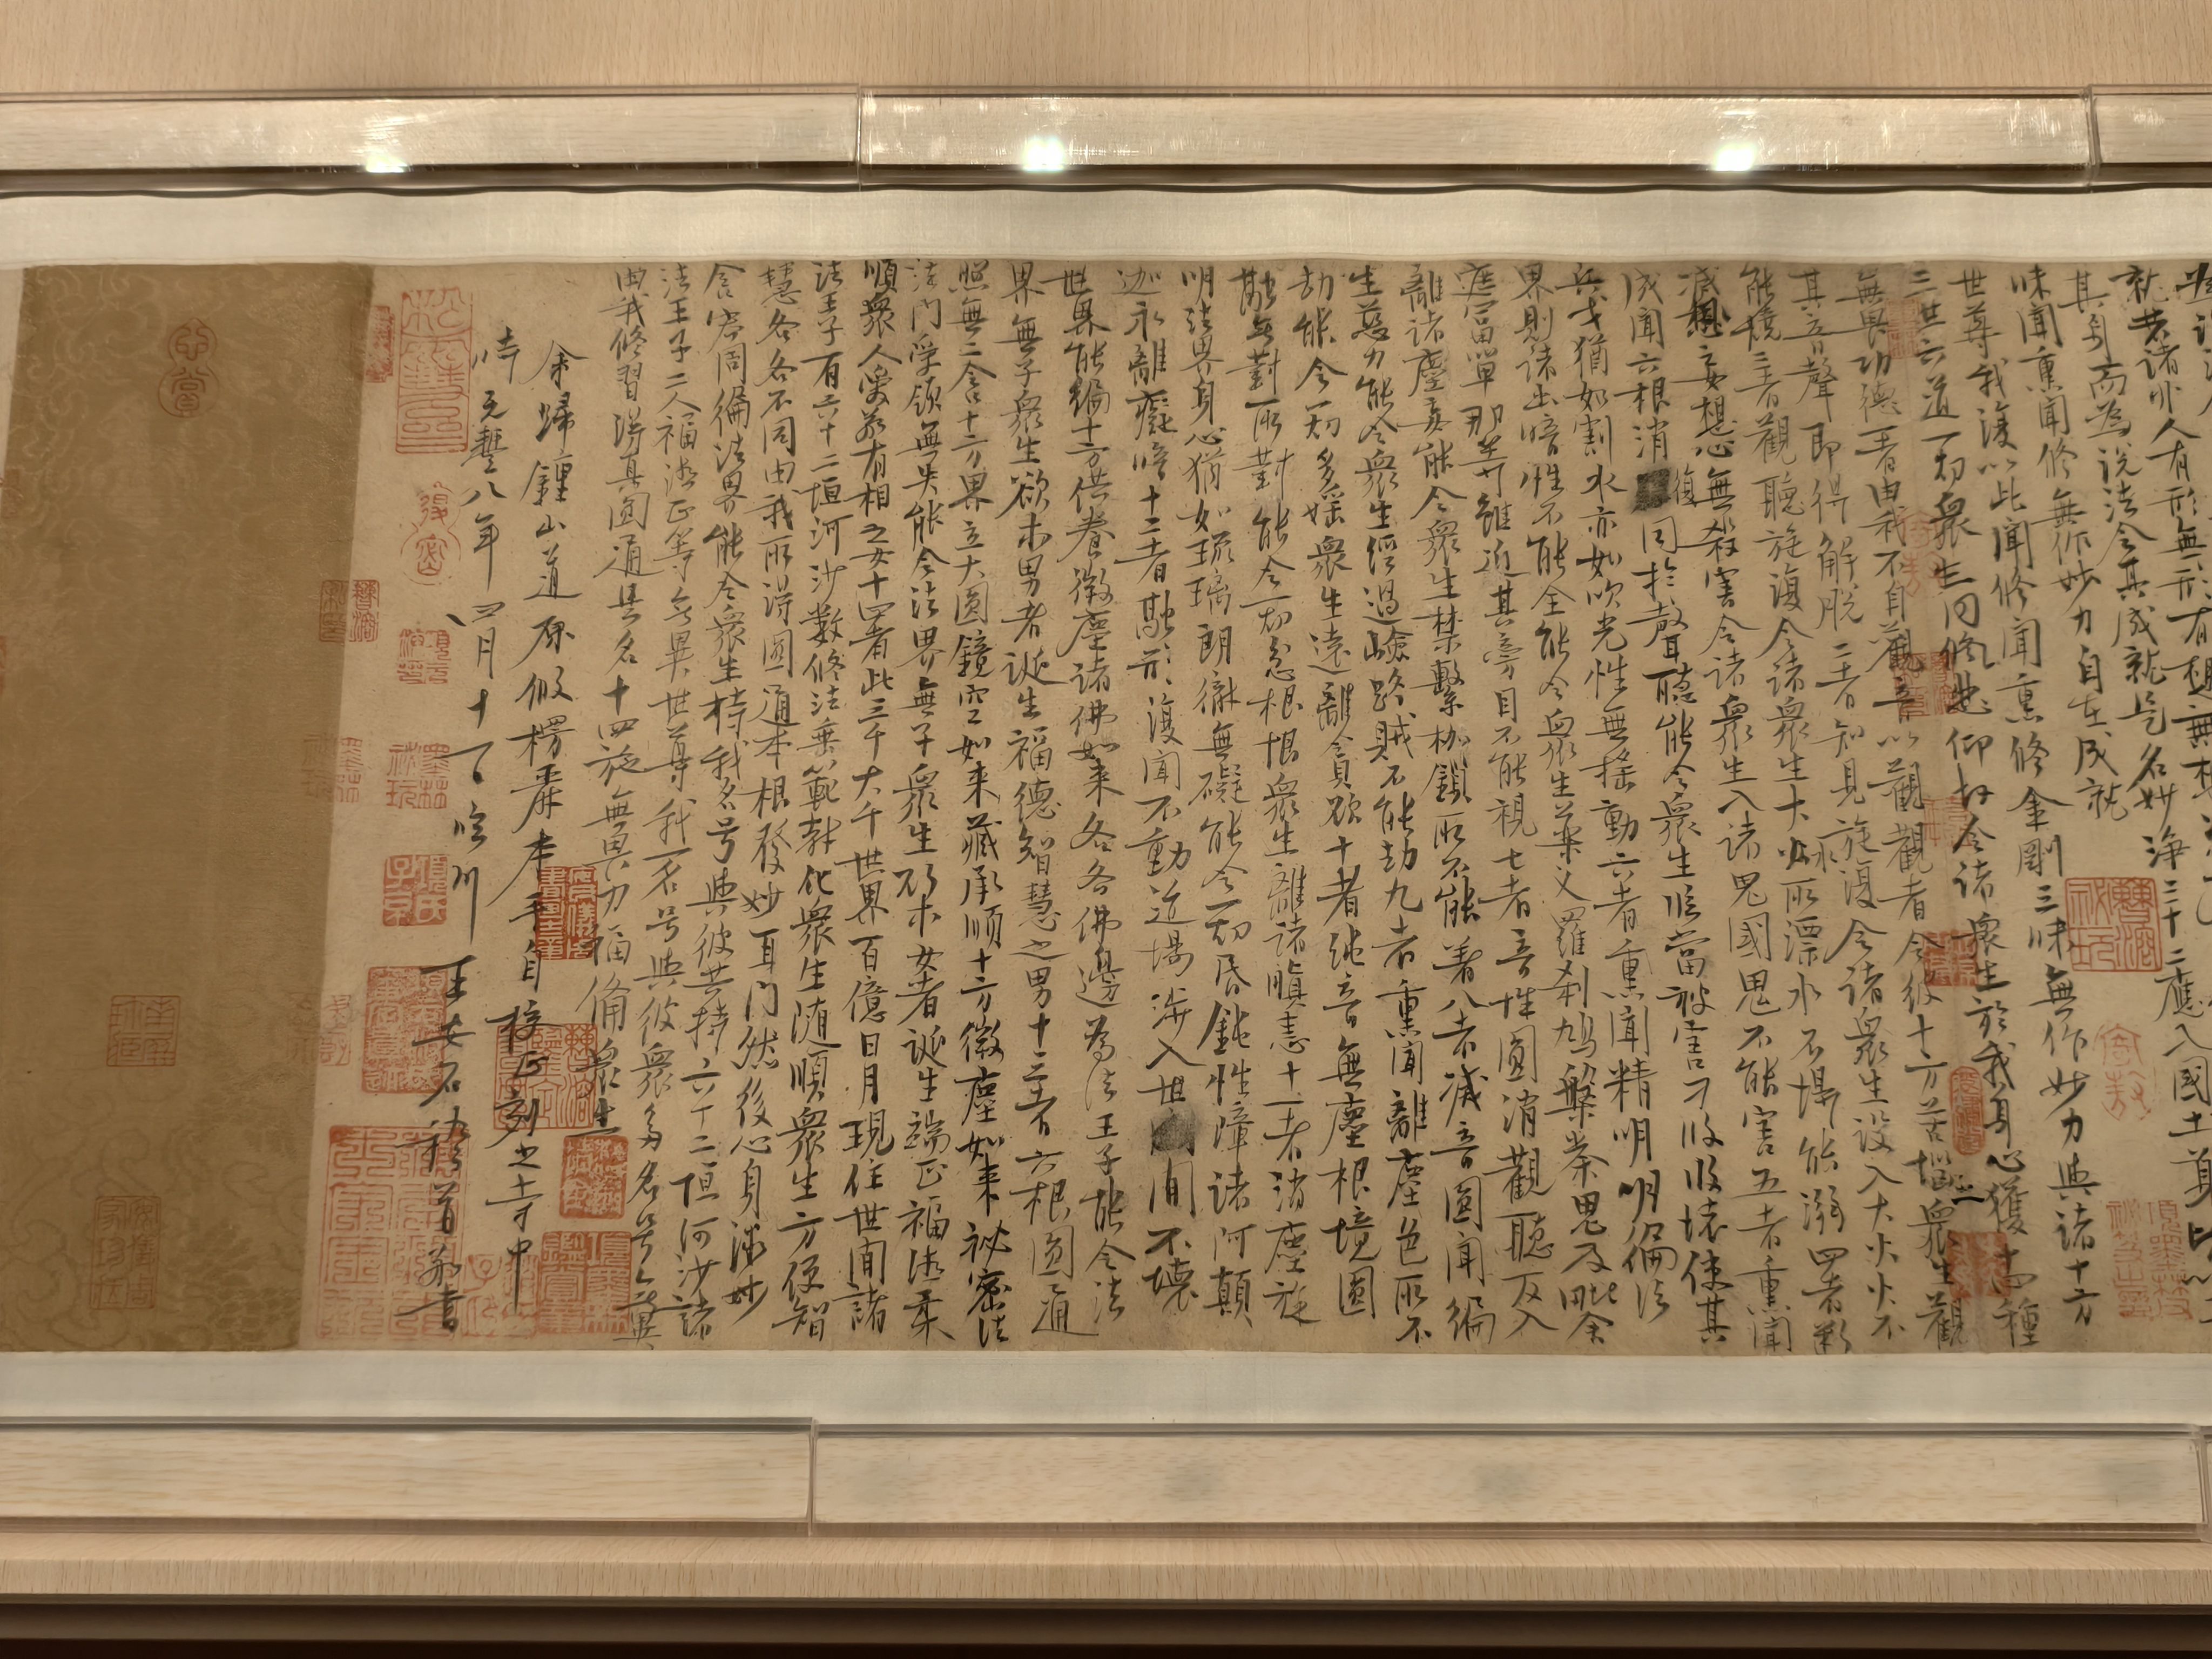 就若諸非人有形無形有想無
其身而為說法令其成就是名妙淨三十二應入國土身
味聞熏聞修無作妙力自在成就
世尊我復以此聞修聞熏修金剛三昧無作妙力與諸十方
三世六道一切衆生同悲仰故令諸衆生於我身心獲十四種
無畏功德一者由我不自觀音以觀觀者令彼十方苦惱衆生觀
其音聲即得解脫二者知見旋復令諸衆生設入大火火不
能燒三者觀聽旋復令諸衆生大水所漂水不能溺四者斷
滅妄想心無殺害令諸衆生入諸鬼國鬼不能害五者熏聞
成聞六根消復同於聲聽能令衆生臨當被害刀段段壞使其
兵戈猶如割水亦如吹光性無搖動六者熏聞精明明徧法
界則諸幽暗性不能全能令衆生藥叉羅刹鳩槃荼鬼及毗舍
遮富單那等雖近其旁目不能視七者音性圓消觀聽返入
離諸塵妄能令衆生禁繫枷鎖所不能著八者滅音圓聞徧
生慈力能令衆生經過嶮路賊不能劫九者熏聞離塵色所不
劫能令一切多婬衆生遠離貪欲十者純音無塵根境圓
融無對所對能令一切忿恨衆生離諸嗔恚十一者消塵旋
明法界身心猶如琉璃朗徹無礙能令一切昏鈍性障諸阿顛
迦永離癡暗十二者融形復聞不動道場涉入世間不壞
世界能徧十方供養微塵諸佛如來各各佛邊為法王子能令法
界無子衆生欲求男者誕生福德智慧之男十三者六根圓通
照無二含十方界立大圓鏡空如來藏承順十方微塵如來祕密法
法門受領無失能令法界無子衆生欲求女者誕生端正福德柔
順衆人愛敬有相之女十四者此三千大千世界百億日月現住世間諸
法王子有六十二恒河沙數修法垂範教化衆生隨順衆生方便智
慧各各不同由我所得圓通本根發妙耳門然後心身微妙
含容周徧法界能令衆生持我名号與彼共持六十二恒河沙諸
法王子二人福德正等無異世尊我一名号與彼衆多名号無異
由我修習得真圓通是名十四施無畏力福備衆生
余歸鍾山道原假楞嚴本手自校正刻之寺中
時元豐八年四月十一日臨川王安石稽首敬書